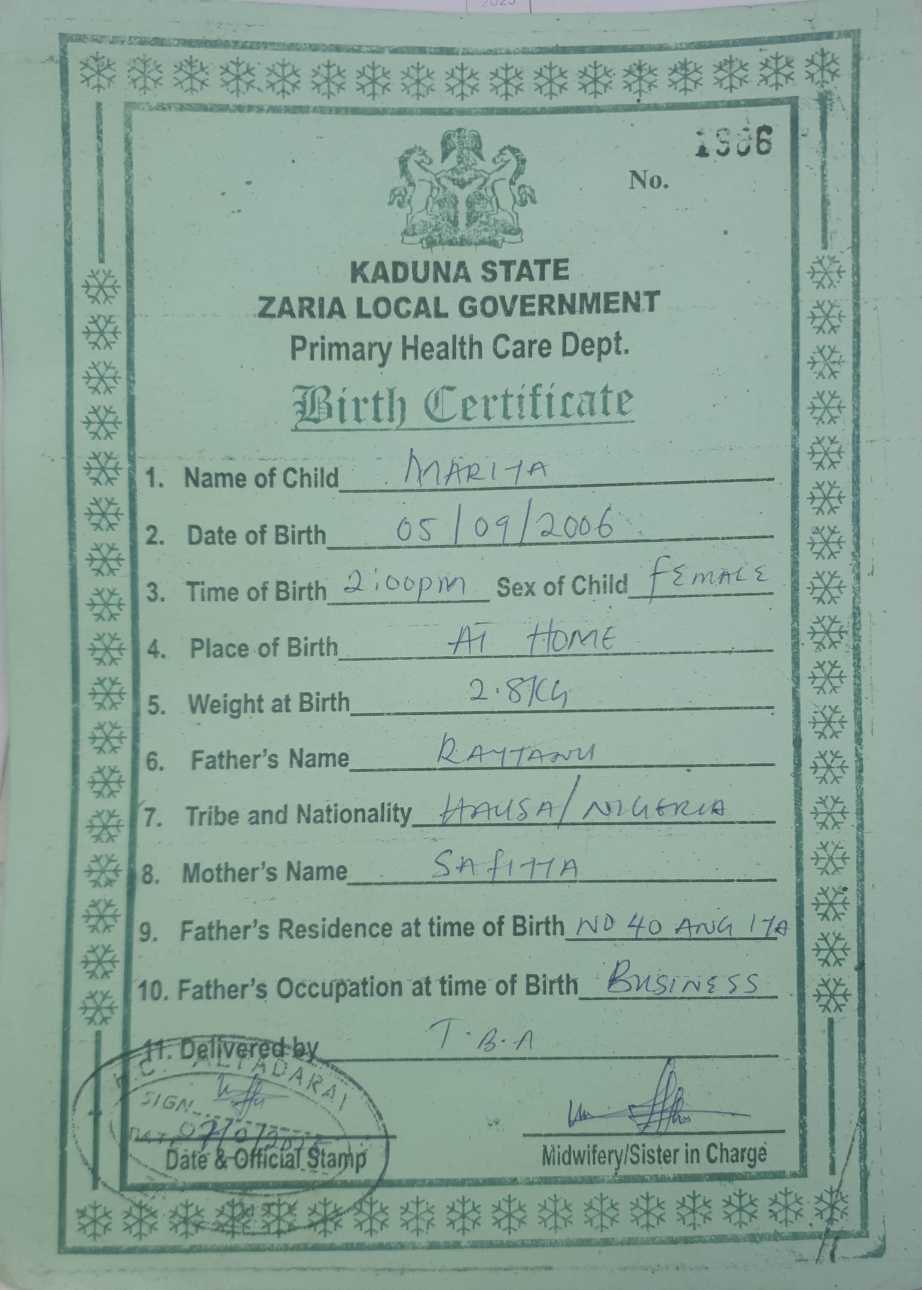 1986
No.
KADUNA STATE
ZARIA LOCAL GOVERNMENT
Primary Health Care Dept.
Birth Certificate
1. Name of Child MARIYA
2. Date of Birth 05/09/2006
3. Time of Birth 2:00pm Sex of Child FEMALE
4. Place of Birth AT HOME
5. Weight at Birth 2.8KG
6. Father's Name RAYYANU
7. Tribe and Nationality HAUSA/NIGERIA
8. Mother's Name SAFIYYA
9. Father's Residence at time of Birth NO 40 ANG IYA
10. Father's Occupation at time of Birth BUSINESS
11. Delivered by T.B.A
SIGN
DATE
Date & Official Stamp
Midwifery/Sister in Charge